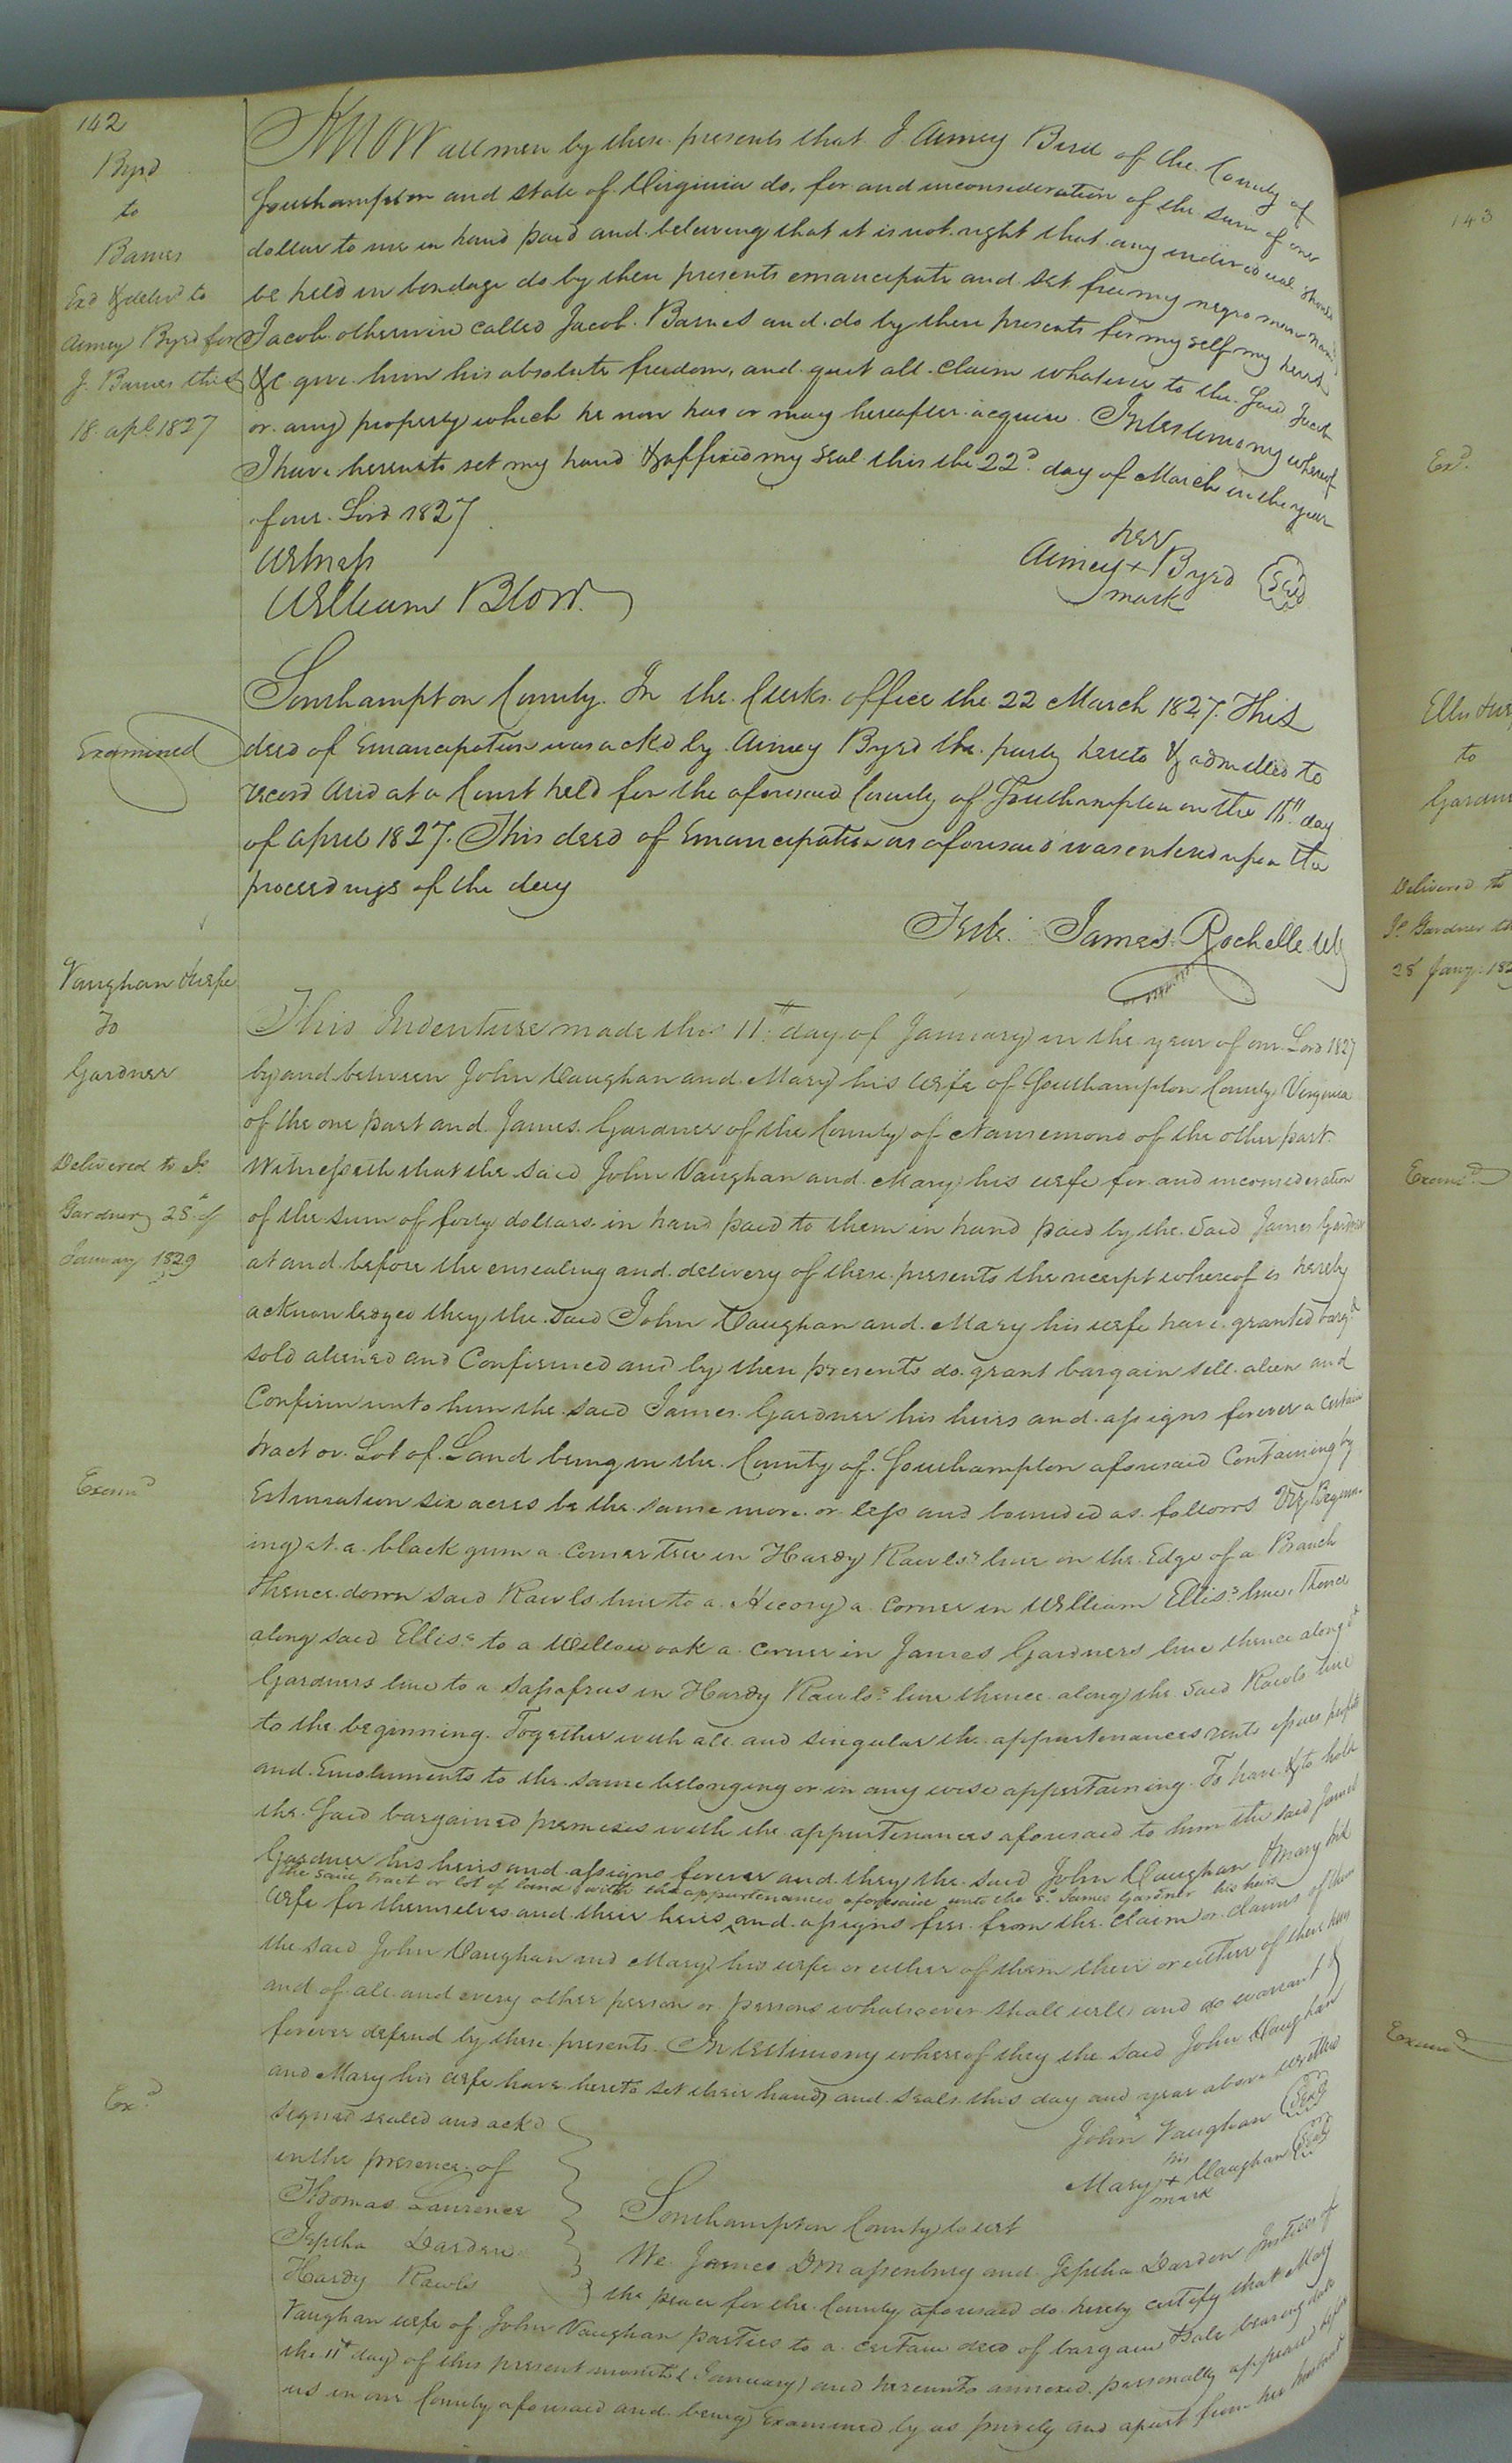 142
Byrd
to
Barnes
Exd & delivd to
Aimey Byrd for
J. Barnes this
18 apl 1827
Know all men by these presents that I Aimey Bird of the County of
Southampton and state of Virginia do, for and in consideration of the sum of one
dollar to me in hand paid and beleiving that it is not right that any individual should
be held in bondage do by these presents emancipate and set free my negro man named
Jacob otherwise called Jacob Barnes and do by these presents for myself my heirs
&c give him his absolute freedom, and quit all claim whatever to the said Jacob
or any property which he now has or may hereafter acquire. In testimony whereof
I have hereunto set my hand & affixed my seal this the 22d day of March in the year
of our Lord 1827
Witness
William Blow
her
Aimey + Byrd Seal
mark
Examined
Southampton County. In the Clerks office the 22 March 1827. This
deed of Emancipation was ackd by Aimey Byrd the party hereto & admitted to
record And at a Court held for the aforesaid County of Southampton on the 16th day
of April 1827. This deed of Emancipation as aforesaid was entered upon the
proceedings of the day
Teste. James Rochelle Clk
Vaughan & wife
To
Gardner
Delivered to Js
Gardner 28 of
January 1829
Examd
Exd
This Indenture made this 11th day of January in the year of our Lord 1827
by and between John Vaughan and Mary his wife of Southampton County Virginia
of the one part and James Gardner of the County of Nansemond of the other part.
Witnesseth that the said John Vaughan and Mary his wife for and in consideration
of the sum of forty dollars in hand paid to them in hand paid by the said James Gardner
at and before the ensealing and delivery of these presents the receipt whereof is hereby
acknowledged they the said John Vaughan and Mary his wife have granted bargd
sold aliened and Confirmed and by these presents do grant bargain sell alien and
Confirm unto him the said James Gardner his heirs and assigns forever a certain
tract or Lot of Land being in the County of Southampton aforesaid Containing by
Estimation six acres be the same more or less and bounded as follows Viz, Beginn-
ing at a black gum a corner tree in Hardy Rawls's line in the Edge of a Branch
thence down said Rawls line to a Hicory a corner in William Ellis's line, thence
along said Ellis's to a Willow oak a corner in James Gardners line thence along sd
Gardners line to a sassafras in Hardy Rawls's line thence along the said Rawls line
to the beginning. Together with all and singular the appurtenances rents issues profits
and Emoluments to the same belonging or in any wise appertaining. To have & to hold
the said bargained premises with the appurtenances aforesaid to him the said James
Gardner his heirs and assigns forever and they the said John Vaughan & Mary his
the said tract or lot of land with the appurtenances aforesaid unto the sd James Gardner his heirs
wife for themselves and their heirs ^ and assigns free from the claim or claims of them
the said John Vaughan and Mary his wife or either of them their or either of their heirs
and of all and every other person or persons whatsoever shall will and do warrant &
forever defend by these presents. In testimony whereof they the said John Vaughan
and Mary his wife have hereto set their hands and seals this day and year above written
signed sealed and ackd
in the presence of
Thomas Laurence
Jeptha Darden
Hardy Rawls
John Vaughan Seal
his
Mary + Vaughan Seal
mark
Southampton County to wit
We James D Massenburg and Jeptha Darden Justices of
the peace for the County aforesaid do hereby certify that Mary
Vaughan wife of John Vaughan parties to a certain deed of bargain & sale bearing date
the 11th day of this present month (January) and hereunto annexed personally appeared before
us in our County aforesaid and being Examined by us privily and apart from her husband
143
Exd.
to
Delivered to
Js Gardner
Examd
Examd